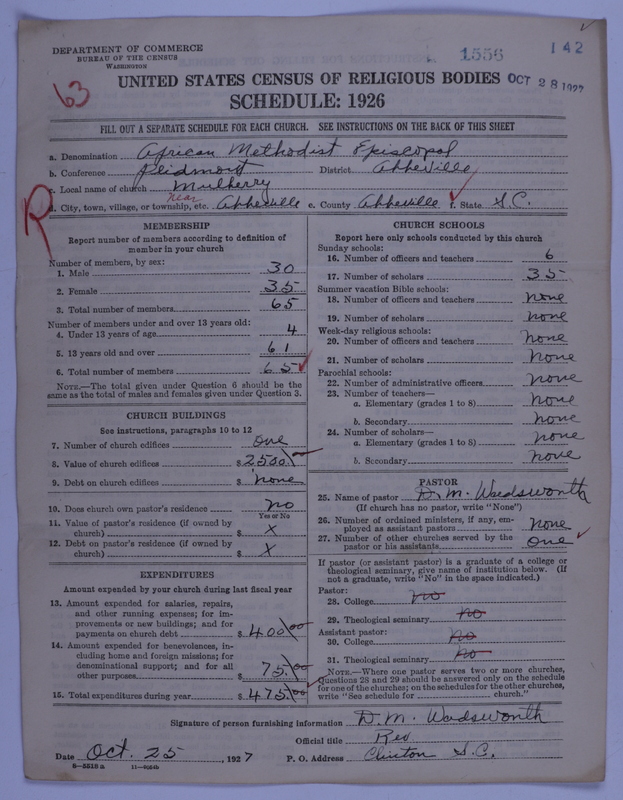 DEPARTMENT OF COMMERCE
BUREAU OF THE CENSUS
WASHINGTON
1556
142
63
UNITED STATES CENSUS OF RELIGIOUS BODIES
OCT 28 1927
SCHEDULE: 1926
FILL OUT A SEPARATE SCHEDULE FOR EACH CHURCH. SEE INSTRUCTIONS ON THE BACK OF THIS SHEET
a. Denomination African Methodist Episcopal
b. Conference Peidmont District Abbeville
c. Local name of church Mulberry
R
near
d. City, town, village, or township, etc. Abbeville e. County Abbeville f. State S.C.
MEMBERSHIP
Report number of members according to definition of
member in your church
Number of members, by sex:
1. Male 30
2. Female 35
3. Total number of members 65
Number of members under and over 13 years old:
4. Under 13 years of age 4
5. 13 years old and over 61
6. Total number of members 65
NOTE.—The total given under Question 6 should be
same as the total of males and females given under Question 3.
CHURCH BUILDINGS
See instructions, paragraphs 10 to 12
7. Number of church edifices one
8. Value of church edifices $ 2500.
9. Debt on church edifices $ none
10. Does church own pastor's residence no
Yes or No
11. Value of pastor's residence (if owned by
church) $ X
12. Debt on pastor's residence (if owned by
church) $ X
EXPENDITURES
Amount expended by your church during last fiscal year
13. Amount expended for salaries, repairs,
and other running expenses; for im-
provements or new buildings; and for
payments on church debt $ 400.00
14. Amount expended for benevolences, in-
cluding home and foreign missions; for
denominational support; and for all
other purposes $ 75.00
15. Total expenditures during year $ 475.00
CHURCH SCHOOLS
Report here only schools conducted by this church
Sunday schools:
16. Number of officers and teachers 6
17. Number of scholars 35
Summer vacation Bible schools:
18. Number of officers and teachers none
19. Number of scholars none
Week-day religious schools:
20. Number of officers and teachers none
21. Number of scholars none
Parochial schools:
22. Number of administrative officers none
23. Number of teachers—
a. Elementary (grades 1 to 8) none
b. Secondary none
24. Number of scholars—
a. Elementary (grades 1 to 8) none
b. Secondary none
PASTOR
25. Name of pastor D. M. Wardsworth
(If church has no pastor, write "None")
26. Number of ordained ministers, if any, em-
ployed as assistant pastors none
27. Number of other churches served by the
pastor or his assistants one
If pastor (or assistant pastor) is a graduate of a college or
theological seminary, give name of institution below. (If
not a graduate, write "No" in the space indicated.)
Pastor:
28. College no
29. Theological seminary no
Assistant pastor:
30. College no
31. Theological seminary no
NOTE.—Where one pastor serves two or more churches,
Questions 28 and 29 should be answered only on the schedule
for one of the churches; on the schedules for the other churches,
write "See schedule for church."
Signature of person furnishing information D. M. Wadsworth
Official title Rev
Date Oct. 25, 1927 P. O. Address Clinton S.C.